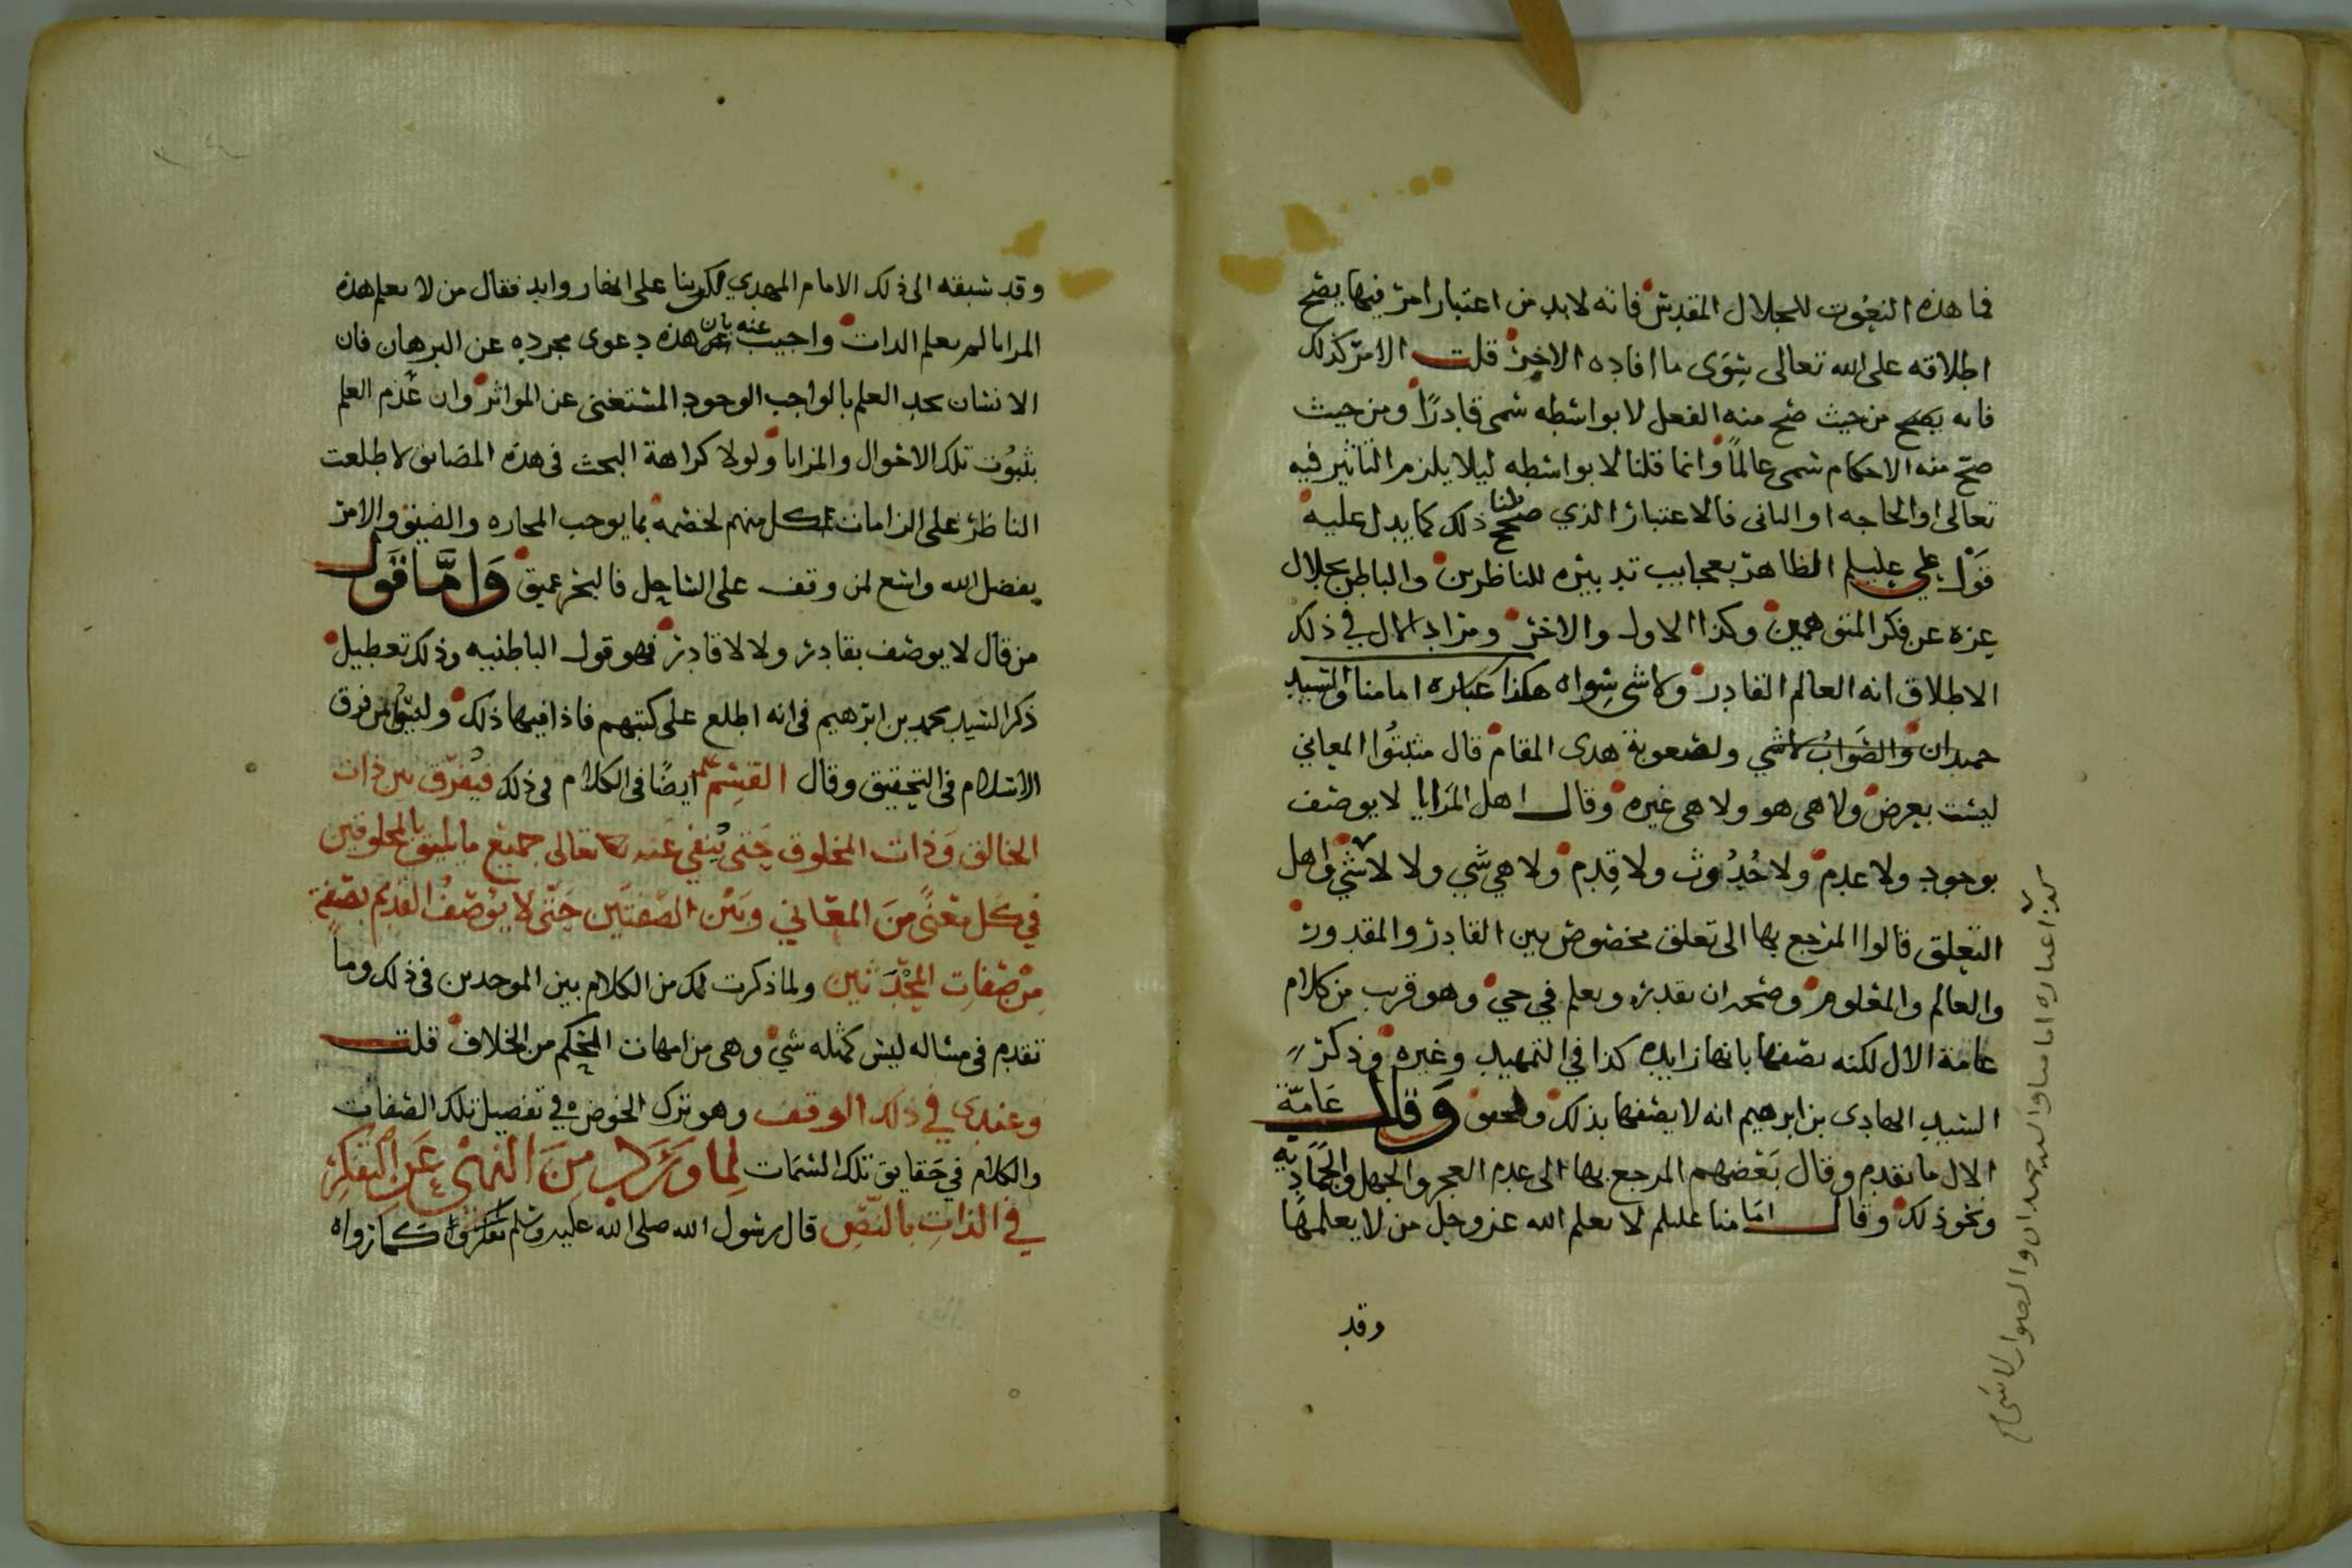 فما هذه النعوت للجلال المقدس فانه لابد من اعتبار امر فيها يصح
اطلاقه على الله تعالى سوى ما افاده الاخر قلت الامر كذلك
فانه يصح من حيث صح منه الفعل لا بواسطه سمى قادرًا ومن حيث
صح منه الاحكام سمى عالمًا وانما قلنا لا بواسطه ليلا يلزم التاثير فيه
تعالى او الحاجه او الثانى فالاعتبار الذي صحح لنا ذلك كما يدل عليه
قول علي عليلم الظاهر بعجايب تدبيره للناظرين والباطن بجلال
عزه عن فكر المتوهمين وكذا الاول والاخر ومراد الال في ذلك
الاطلاق انه العالم القادر ولاشى سواه هكذا عباره امامنا والسيد
حميدان والصواب لاشي ولصعوبة هدى المقام قال مثبتوا المعاني
ليست بعرض ولا هى هو ولا هى غيره وقال اهل المزايا لا يوصف
بوجود ولا عدم ولا حدوث ولا قدم ولا هي شي ولا لا شي واهل
التعلق قالوا المرجع بها الى تعلق مخصوص بين القادر والمقدور
والعالم والمعلوم وصحه ان يقدر ويعلم في حي وهو قريب من كلام
عامة الال لكنه يصفها بانها زايده كذا في التمهيد وغيره وذكر
السيد الهادى بن ابرهيم انه لا يصفها بذلك والحق وقال عامّة
الال ما تقدم وقال بعضهم المرجع بها الى عدم العجز والجهل والجماديه
ونحو ذلك وقال امامنا عليلم لا يعلم الله عز وجل من لا يعلمها
وقد
كذا عباره امامنا والسيد حميدان والصواب لا شي
وقد سبقه الى ذلك الامام المهدي لكن بنا على المغار وايد فقال من لا يعلم هذه
المزايا لم يعلم الذات واجيب عنه بان هذه دعوى مجرده عن البرهان فان
الانسان يجد العلم بالواجب الوجود المستغنى عن المواثر وان عدم العلم
بثبوت تلك الاحوال والمزايا ولولا كراهة البحث فى هذه المضايق لاطلعت
الناظر على الزامات لكل منهم لخصمه بما يوجب المحاره والضيق والامر
بفضل الله واسع لمن وقف على الساحل فالبحر عميق وَامَّا قَول
من قال لا يوصف بقادر ولا لا قادر فهو قول الباطنيه وذلك تعطيل
ذكر السيد محمد بن ابرهيم فى انه اطلع على كتبهم فاذا فيها ذلك وليتق من فرق
الاسلام فى التحقيق وقال القسم علم ايضًا فى الكلام فى ذلك فيُفرّق بين ذات
الخالق وَذات المخلوق حَتى يُنفي عَنه تعالى جميع ما يليق بالمخلوقين
في كل معنًى منَ المعَاني وبَيْن الصّفتَين حَتّى لا يُوصَفُ القديم بصفة
مِنْ صفات المحْدَثين ولما ذكرت لك من الكلام بين الموحدين فى ذلك وما
تقدم فى مساله ليس كمثله شي وهى من امهات المحكم من الخلاف قلت
وعندي في ذلك الوقف وهو ترك الخوض في تفصيل تلك الصفات
والكلام في حقايق تلك السمَات لِما وَرَدَ مِنَ النهْي عَن التفكر
في الذات بالنّصِ قال رسول الله صلى الله عليه وسلم تفكروا كما رواه